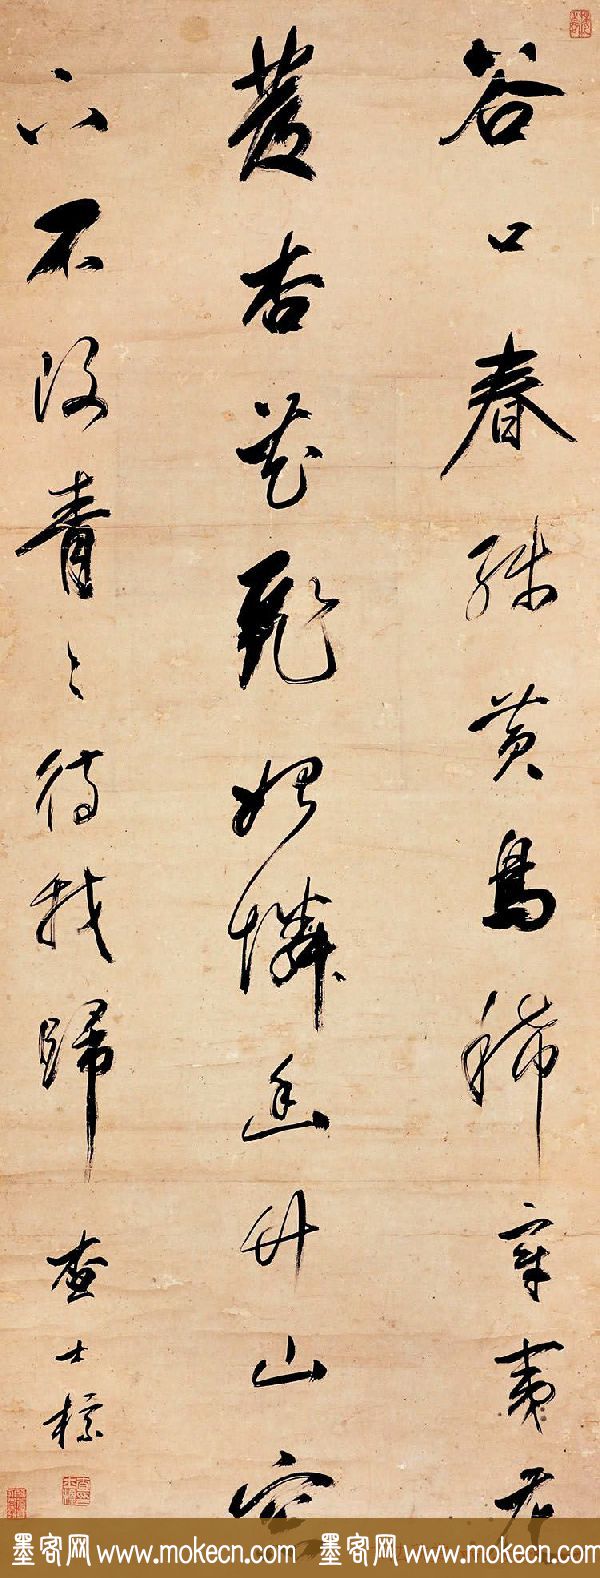 谷口春殘黃鳥稀辛夷
杏花飛始憐幽竹山窗
下不改青々待我歸
查士標
墨客网www.mokecn.com 墨客网www.mokecn.com